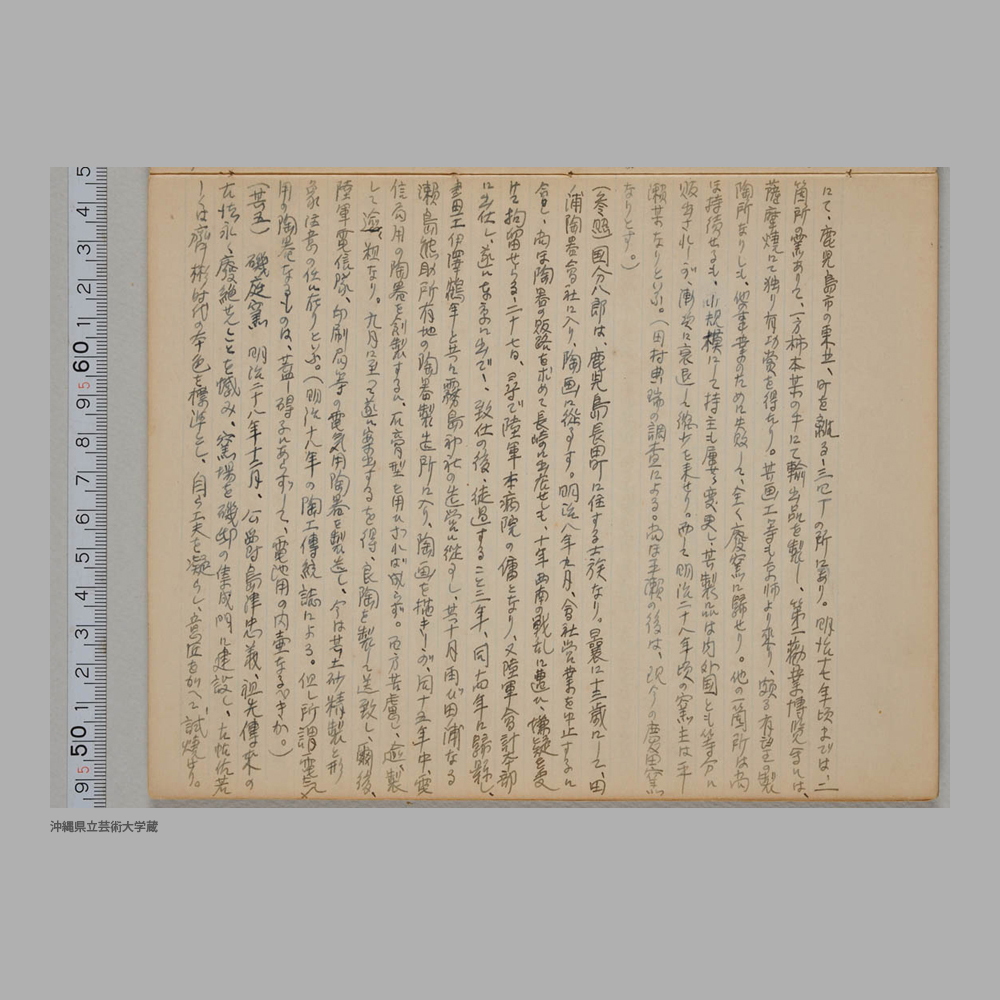 にて、鹿児島市の東北、町を離るゝ三四丁の所にあり。明治十七年頃までは、二
箇所の窯ありて、一方柿本某の手にて輸出品を製し、第一勧業博覧会には、
薩摩焼にて独り有功賞を得たり。其画工等も京師より来り、頗る有望の製
陶所なりしも、営業のために失敗して、全く廃窯に歸せり。他の一箇所は尚
ほ持續せるも、小規模にして持主も屢々変更し、其製品は内外国とも等分に
販売されしが、漸次に衰退して終りを来せり。而して明治二十八年頃の窯主は平
瀬某なりといふ。(田村典瑞の調査による。尚ほ平瀬の後は、現今の慶田窯
なりとす。)
(参照)国分八郎は、鹿児島長田町に住する士族なり。曩に十三歳にして、田
浦陶器會社に入り、陶画に從事す。明治八年九月、會社営業を中止するに
會し、尚ほ陶器の販路を求めて長崎に出春せしも、十年西南の戦乱に遭ひ、嫌疑を受
け拘留せらるゝ二十七日、尋で陸軍本病院の傭となり、又陸軍會計本部
に出仕し、遂に東京に出で、致仕の後、徒過すること三年、同十四年に歸縣し、
畫工伊澤鶴年と共に霧島神社の造営に從事し、其十月再び田浦なる
瀬島熊助所有地の陶器製造所に入り、陶画を描きしが、同十五年中、電
信局用の陶器を創製するに、石膏型を用ひざれば成らず。百方苦慮し、逾〻製
して逾〻粗なり。九月に至つて遂に案出するを得、良陶を製して送致し、爾後、
陸軍電信隊、印刷局等の電気用陶器を製造し、今は其土砂精製と形
象注意の任に在りといふ。(明治十九年の陶工傳統誌による。但し所謂電気
用の陶器なるものは、蓋し碍子にあらずして、電池用の内壷なるべきか。)
(其五) 磯庭窯 明治二十八年十二月、公爵島津忠義、祖先傳来の
在焼永く廃絶せんことを慽み、窯場を磯邸の集成門に建設し、在帖佐若
しくは齊彬時代の本色を標準とし、自ら工夫を凝らし、意匠をかへて試焼せり。
沖縄県立芸術大学蔵